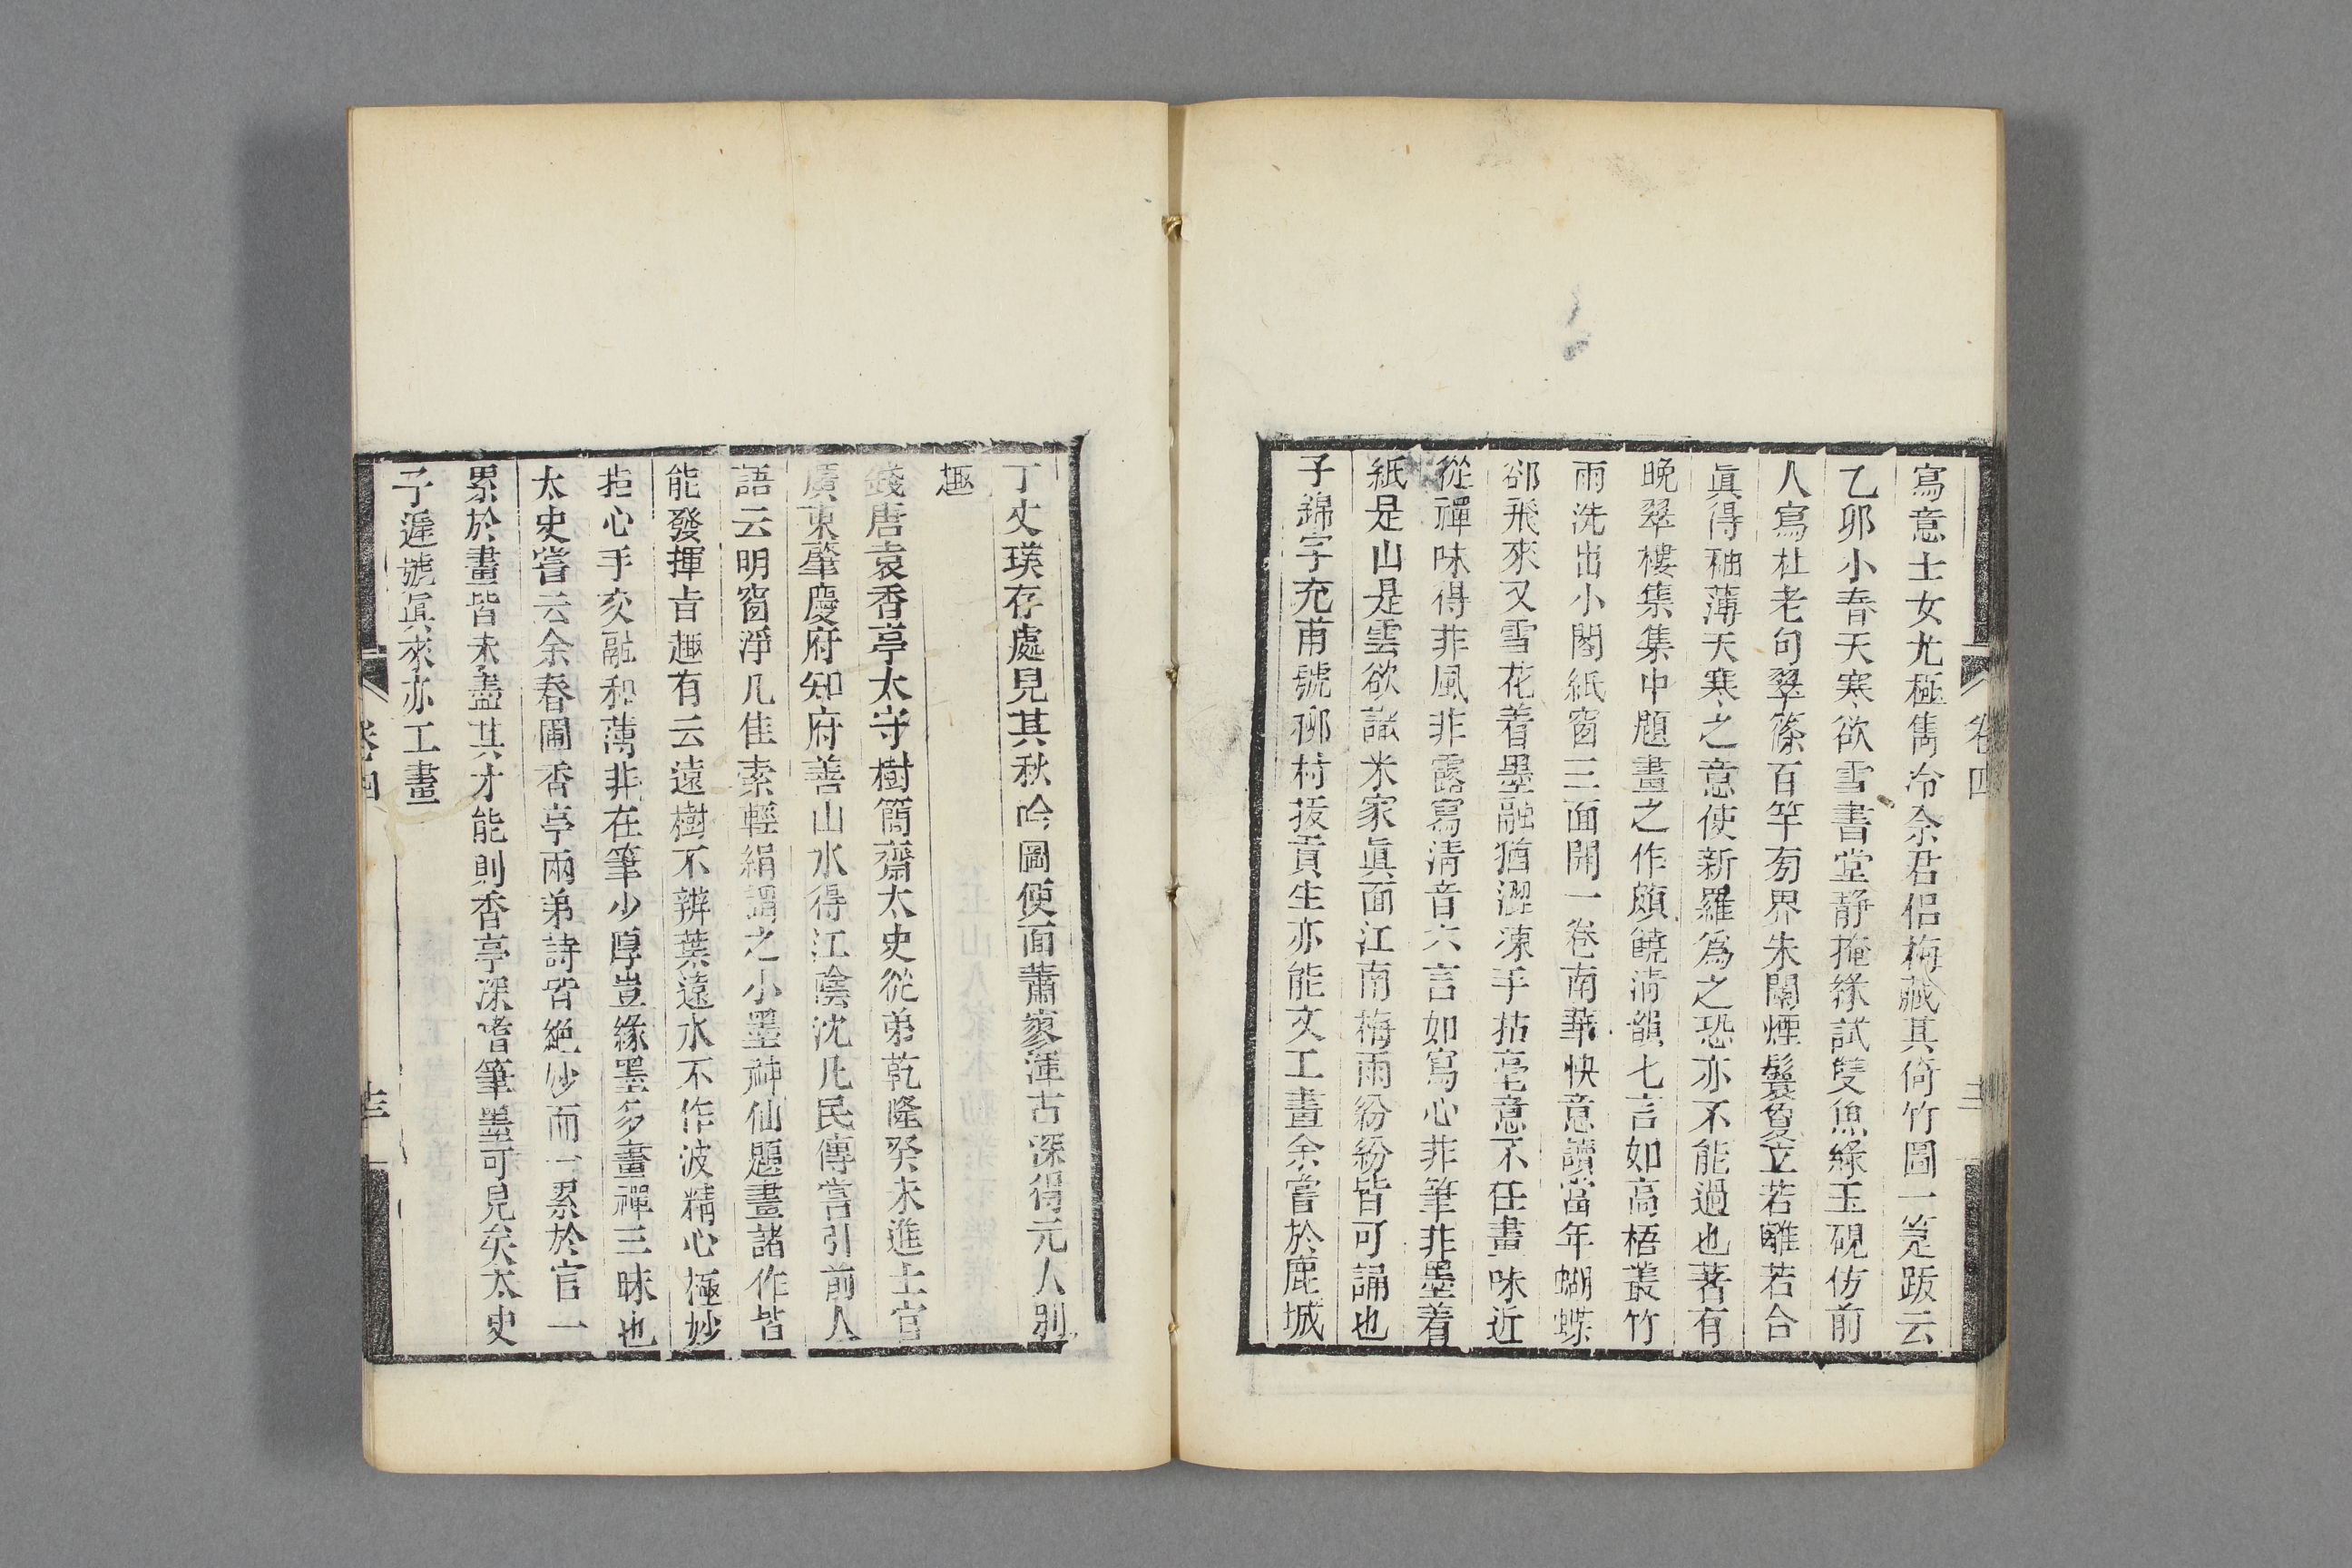 寫意士女尤極雋冷余君侶梅藏其倚竹圖一箑跋云
乙卯小春天寒欲雪書堂靜掩緣試雙魚綠玉硯仿前
人寫杜老句翠篠百竿旁界朱闌煙鬟敻立若離若合
眞得袖薄天寒之意使新羅爲之恐亦不能過也著有
晚翠樓集集中題畫之作頗饒淸韻七言如高梧叢竹
雨洗出小閣紙窗三面開一卷南華快意讀當年蝴蝶
郤飛來又雪花着墨融猶澀凍手拈毫意不任畫味近
從禪味得非風非露寫淸音六言如寫心非筆非墨着
紙是山是雲欲識米家眞面江南梅雨紛紛皆可誦也
子錦字充甫號栁村拔貢生亦能文工畫余嘗於鹿城
卷四
丁丈瑛存處見其秋吟圖便面蕭寥渾古深得元人別
趣
錢唐袁香亭太守樹簡齋太史從弟乾隆癸未進士官
廣東肇慶府知府善山水得江陰沈凡民傳嘗引前人
語云明窗淨几隹索輕絹謂之小墨神仙題畫諸作皆
能發揮旨趣有云遠樹不辨葉遠水不作波精心極妙
指心手交融和薄非在筆少厚豈緣墨多畫禪三昧也
太史嘗云余春圃香亭兩弟詩皆絕妙而一累於官一
累於畫皆未盡其才能則香亭深嗜筆墨可見矣太史
子遲號眞來亦工畫
卷四